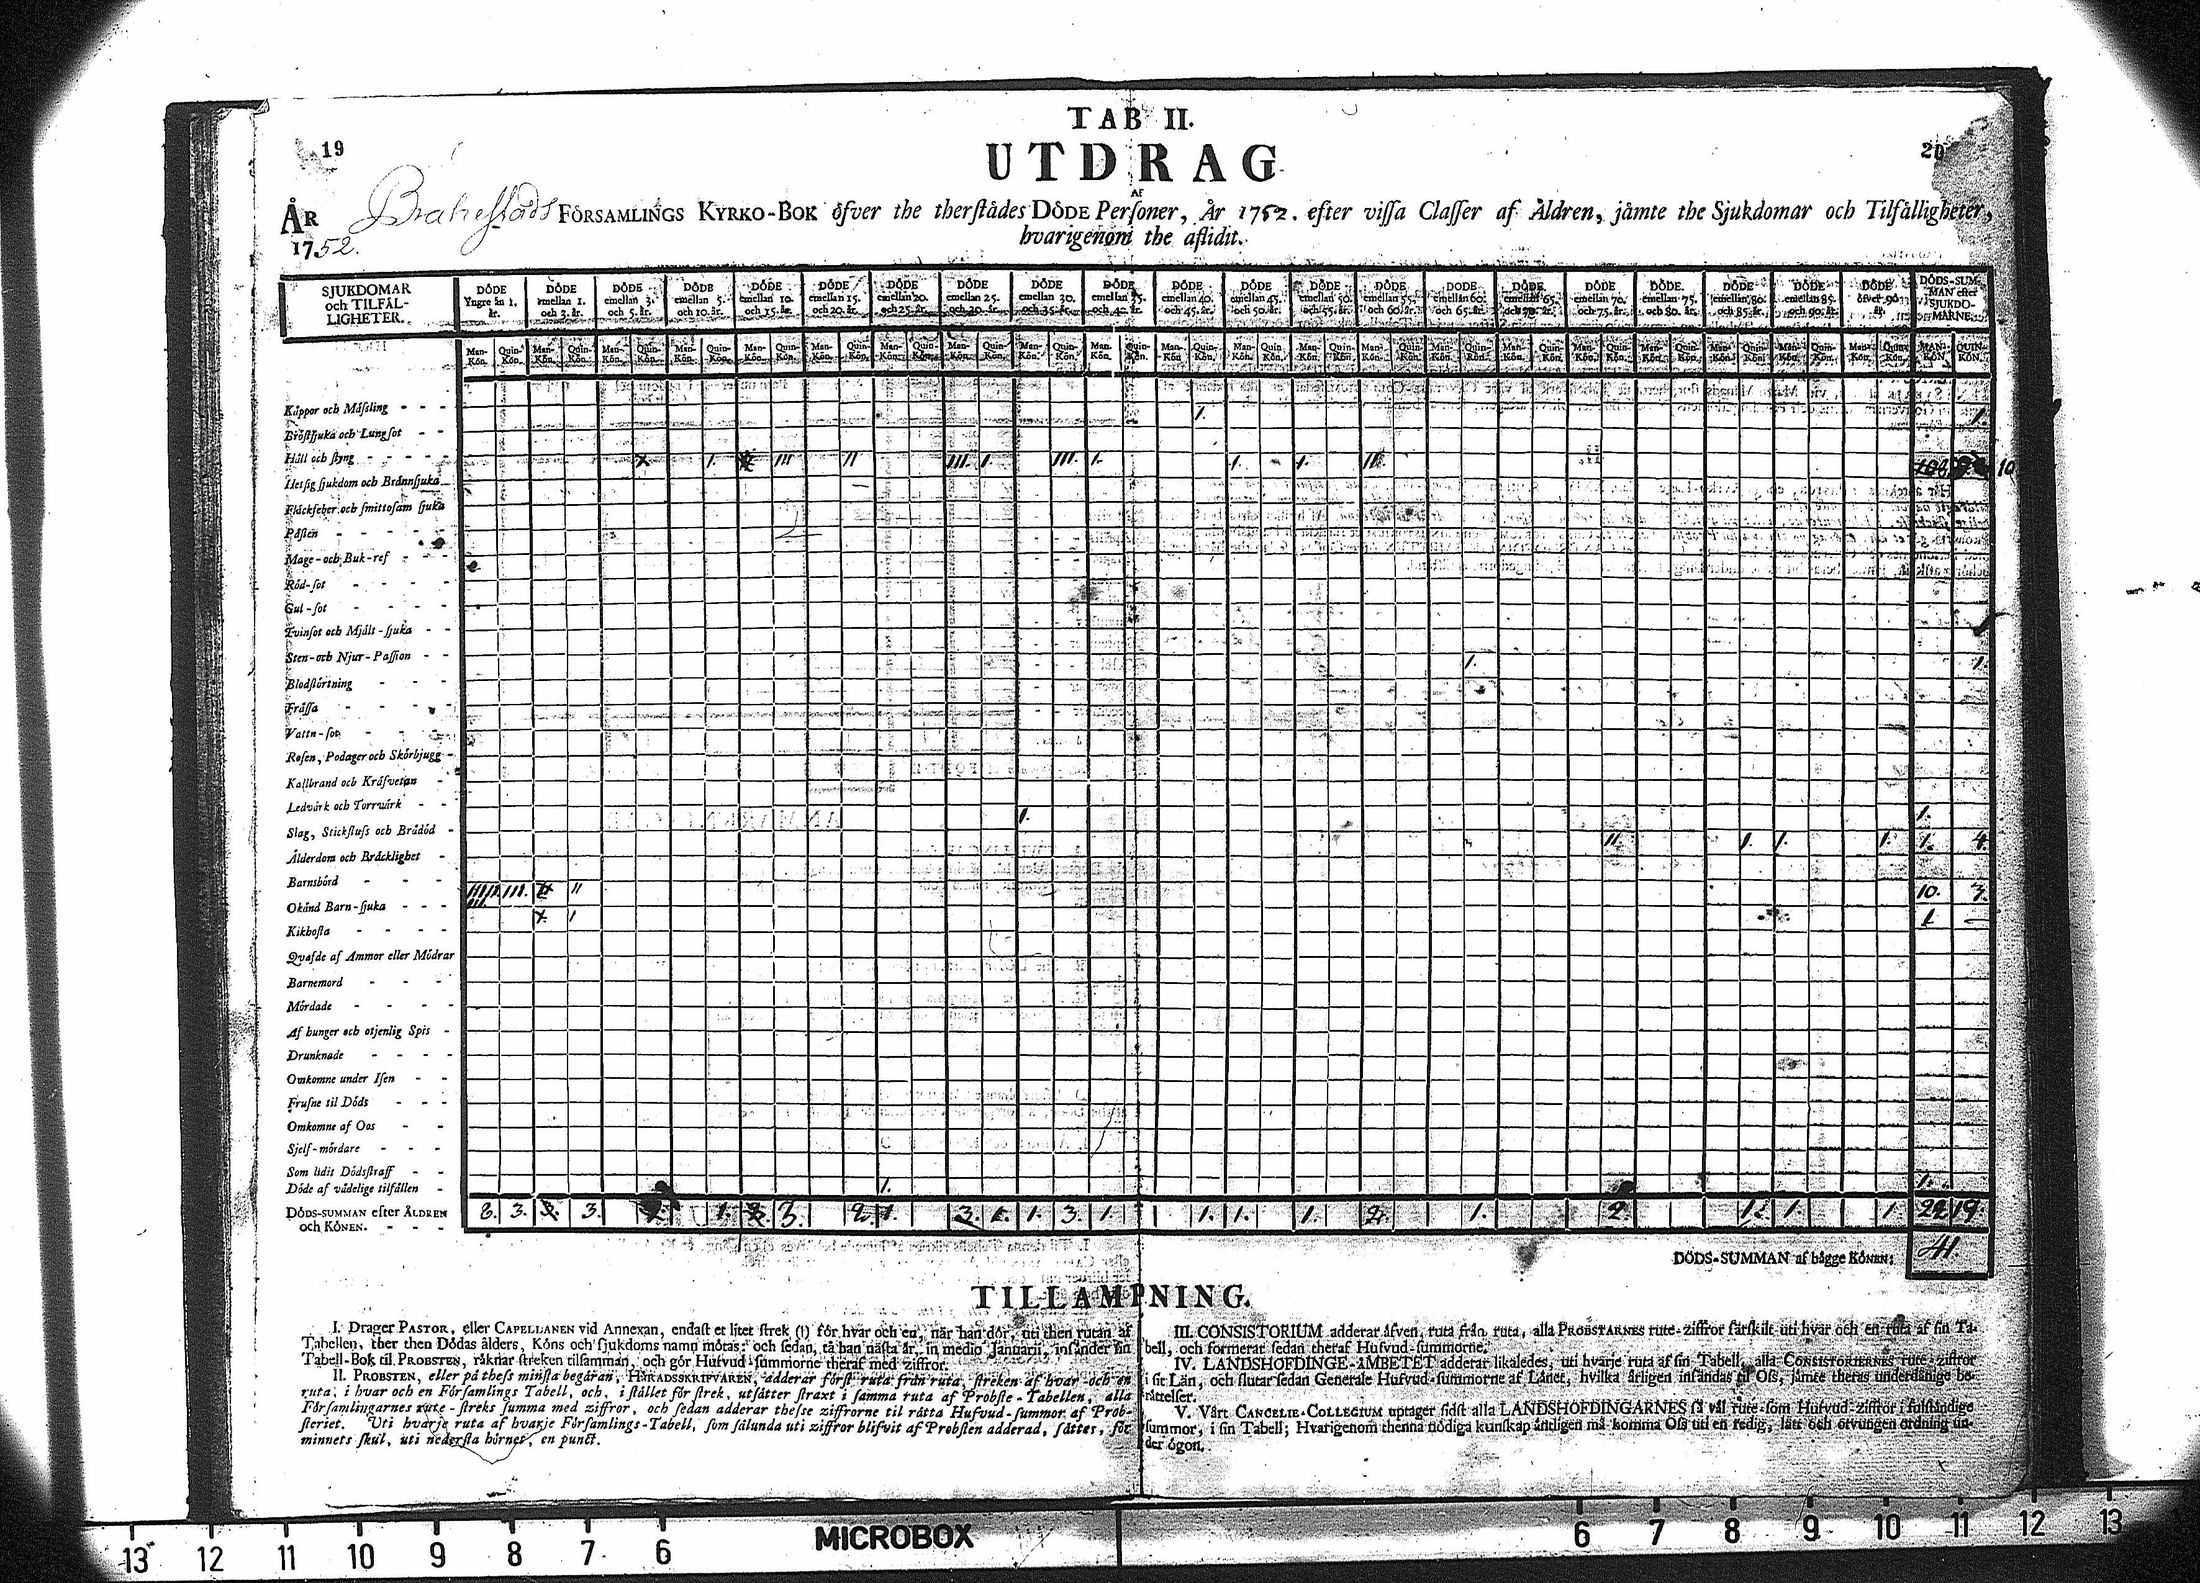 TAB II.
19
UTDRAG
20
AF
ÅR Brahestads FÖRSAMLINGS KYRKO-BOK öfver the therstädes DÖDE Personer, År 1752. efter vissa Classer af Åldren, jämte the Sjukdomar och Tilfälligheter,
1752.
hvarigenom the aflidit.
SJUKDOMAR och TILFÄL-LIGHETER.
DÖDE Yngre än 1. år.
DÖDE emellan 1. och 3. år.
DÖDE emellan 3. och 5. år.
DÖDE emellan 5. och 10. år.
DÖDE emellan 10. och 15. år.
DÖDE emellan 15. och 20. år.
DÖDE emellan 20. och 25. år.
DÖDE emellan 25. och 30. år.
DÖDE emellan 30. och 35. år.
DÖDE emellan 35. och 40. år.
DÖDE emellan 40. och 45. år.
DÖDE emellan 45. och 50. år.
DÖDE emellan 50. och 55. år.
DÖDE emellan 55. och 60. år.
DÖDE emellan 60. och 65. år.
DÖDE emellan 65. och 70. år.
DÖDE emellan 70. och 75. år.
DÖDE emellan 75. och 80. år.
DÖDE emellan 80. och 85. år.
DÖDE emellan 85. och 90. år.
DÖDE öfver 90 år.
DÖDS-SUM-MAN efter SJUKDO-MARNE.
Man-Kön. Quin-Kön. Man-Kön. Quin-Kön. Man-Kön. Quin-Kön. Man-Kön. Quin-Kön. Man-Kön. Quin-Kön. Man-Kön. Quin-Kön. Man-Kön. Quin-Kön. Man-Kön. Quin-Kön. Man-Kön. Quin-Kön. Man-Kön. Quin-Kön. Man-Kön. Quin-Kön. Man-Kön. Quin-Kön. Man-Kön. Quin-Kön. Man-Kön. Quin-Kön. Man-Kön. Quin-Kön. Man-Kön. Quin-Kön. Man-Kön. Quin-Kön. Man-Kön. Quin-Kön. Man-Kön. Quin-Kön. Man-Kön. Quin-Kön. Man-Kön. Quin-Kön. MAN-KÖN. QUIN-KÖN.
Koppor och Mässling - - - 1. 1.
Bröstsjuka och Lungsot - -
Håll och styng - - - - - 1. III II III. 1. III. 1. 1. 1. II 10
Hetsig sjukdom och Brännsjuka
Fläckfeber och smittosam sjuka
Påsten - - - - -
Mage- och Buk-ref - - -
Röd-sot - - - -
Gul-sot - - - -
Tvinsot och Mjält-sjuka - -
Sten- och Njur-Passion - - 1. 1.
Blodstörtning - - -
Frässa - - - -
Vattn-sot - - -
Rosen, Podager och Skörbjugg -
Kallbrand och Kräfvetan -
Ledvärk och Torrwärk - - 1. 1.
Slag, Stickfluss och Brådöd - II. 1. 1. 1. 1. 4.
Ålderdom och Bräcklighet -
Barnsbörd - - - - III. II 10. 3.
Okänd Barn-sjuka - - - 1 1
Kikhosta - - - - -
Qvafde af Ammor eller Mödrar
Barnemord - - - -
Mördade - - - -
Af hunger och otjenlig Spis -
Drunknade - - - -
Omkomne under Isen - -
Frusne til Döds - - -
Omkomne af Oos - -
Sjelf-mördare - - -
Som lidit Dödsstraff - -
Döde af vådelige tilfällen - 1. 1.
DÖDS-SUMMAN efter ÅLDREN och KÖNEN. - - - 8. 3. 3. 1. 3. 2. 1. 3. 1. 1. 3. 1. 1. 1. 1. 2. 1. 2 1. 1. 1 22 19
DÖDS-SUMMAN af bägge KÖNEN; 41.
TILLÄMPNING.
I. Drager PASTOR, eller CAPELLANEN vid Annexan, endast et litet strek (l) för hvar och en, när han dör, uti then rutan af
Tabellen, ther then Dödas ålders, Köns och sjukdoms namn mötas; och sedan, tå han nästa år, in medio Januarii, insänder sin
Tabell-Bok til PROBSTEN, räknar streken tilsamman, och gör Hufvud-summorne theraf med ziffror.
II. PROBSTEN, eller på thess minsta begäran, HÄRADSSKRIFVAREN, adderar först ruta från ruta, streken af hvar och en
ruta, i hvar och en Församlings Tabell, och, i stället för strek, utsätter straxt i samma ruta af Probste-Tabellen, alla
Församlingarnes rute-streks summa med ziffror, och sedan adderar thesse ziffrorne til rätta Hufvud-summor af Prob-
steriet. Uti hvarje ruta af hvarje Församlings-Tabell, som sålunda uti ziffror blifvit af Probsten adderad, sättes, för
minnets skul, uti nedersta hörnet, en punct.
III. CONSISTORIUM adderar äfven, ruta från ruta, alla PROBSTARNES rute-ziffror särskilt uti hvar och en ruta af sin Ta-
bell, och formerar sedan theraf Hufvud-summorne.
IV. LANDSHÖFDINGE-ÄMBETET adderar likaledes, uti hvarje ruta af sin Tabell, alla CONSISTORIERNES rute-ziffror
i sit Län, och slutar sedan Generale Hufvud-summorne af Länet, hvilka årligen insändas til Oss, jämte theras underdånige be-
rättelser.
V. Vårt CANCELIE-COLLEGIUM uptager sidst alla LANDSHÖFDINGARNES så väl rute-som Hufvud-ziffror i fulständige
summor, i sin Tabell; Hvarigenom thenna nödiga kunskap äntligen må komma Oss uti en redig, lätt och otvungen ordning un-
der ögon.
13 12 11 10 9 8 7 6 MICROBOX 6 7 8 9 10 11 12 13